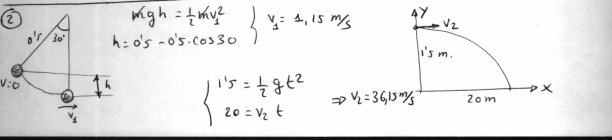 2
0'5 30°
V=0
h
v₁
mgh = ½mv₁²
h = 0'5 - 0'5·cos30
v₁ = 1,15 m/s
1'5 = ½ gt²
20 = v₂ t
⇒ v₂ = 36,15 m/s
Y
v₂
1'5 m.
20m
X